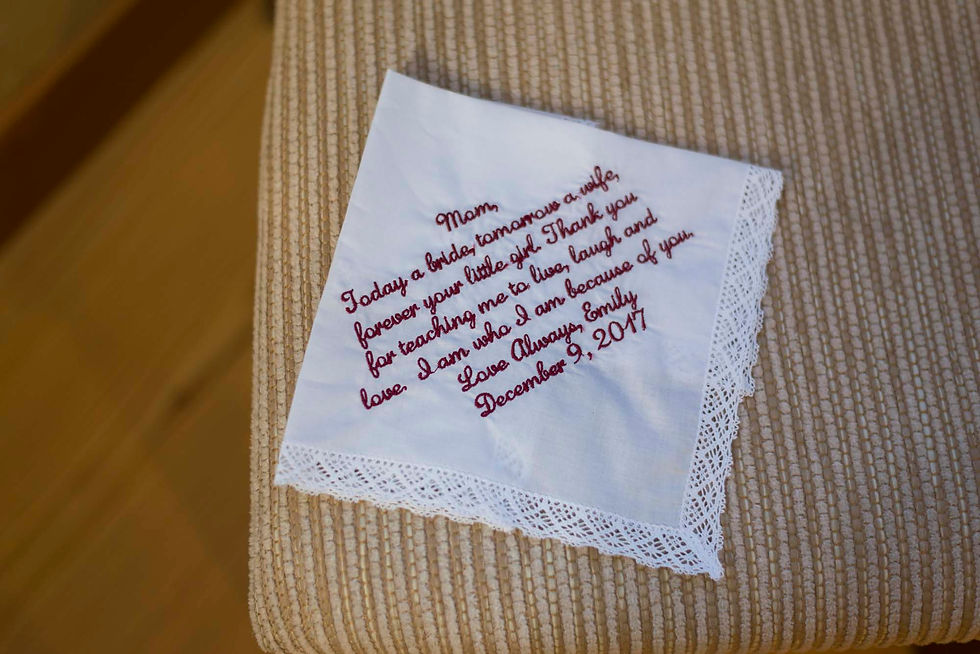 Mom,
Today a bride, tomorrow a wife,
forever your little girl. Thank you
for teaching me to live, laugh and
love. I am who I am because of you.
Love Always, Emily
December 9, 2017